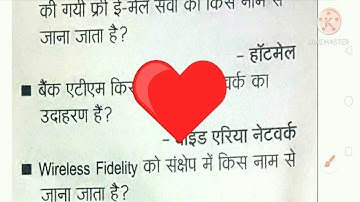 की गयी फ्री ई-मेल सेवा को किस नाम से
जाना जाता है?
- हॉटमेल
■ बैंक एटीएम का
उदाहरण हैं?
एरिया नेटवर्क
■ Wireless Fidelity को संक्षेप में किस नाम से
जाना जाता है?
KINEMASTER